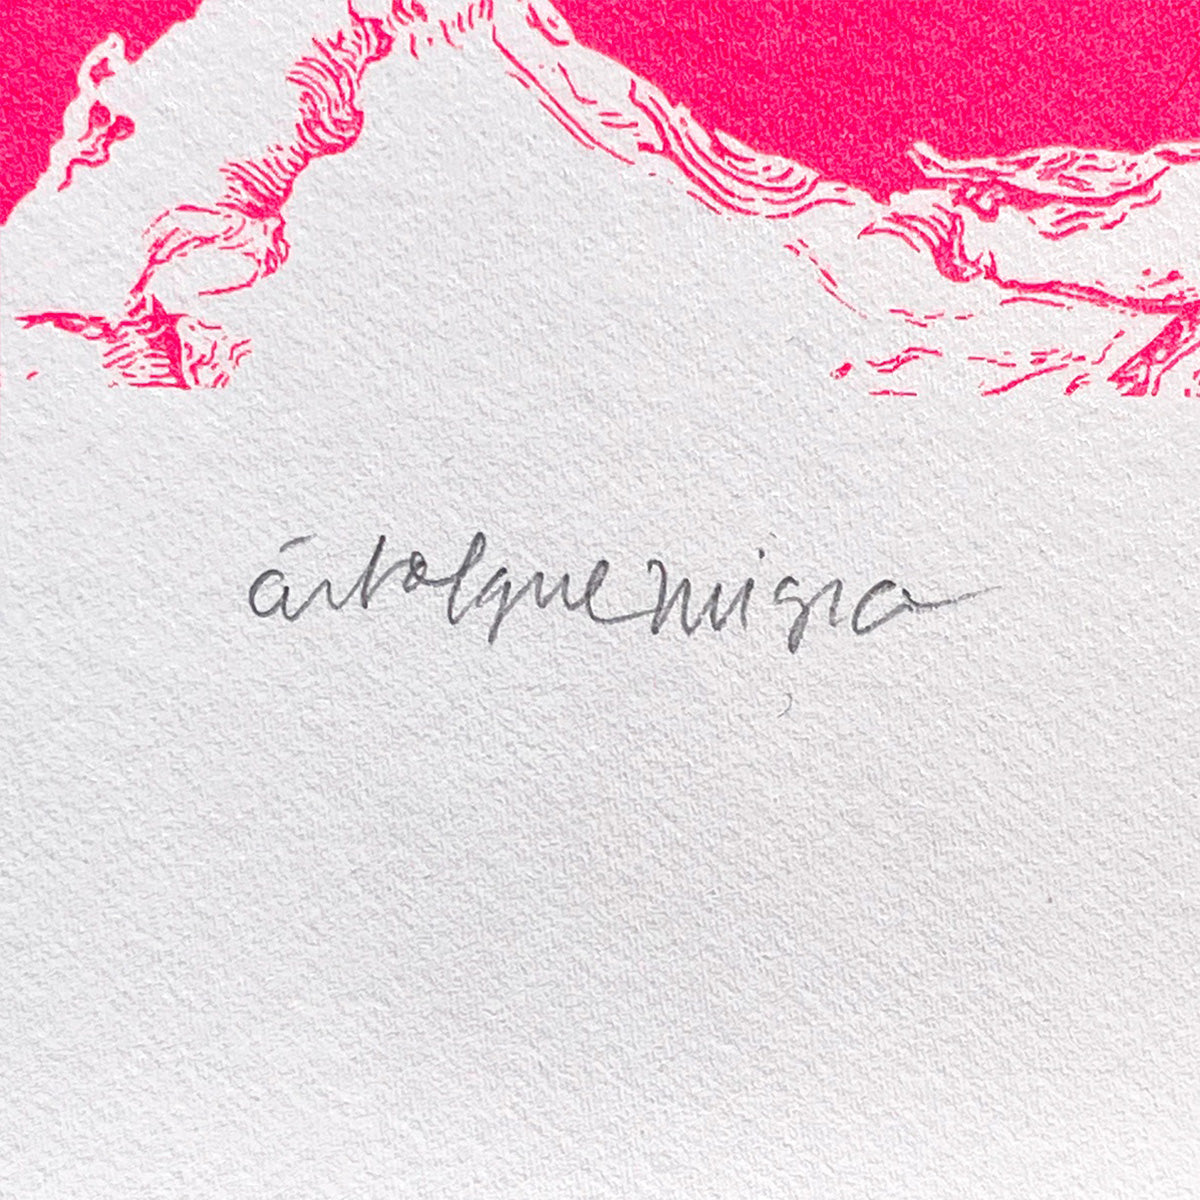 árbolquemigra